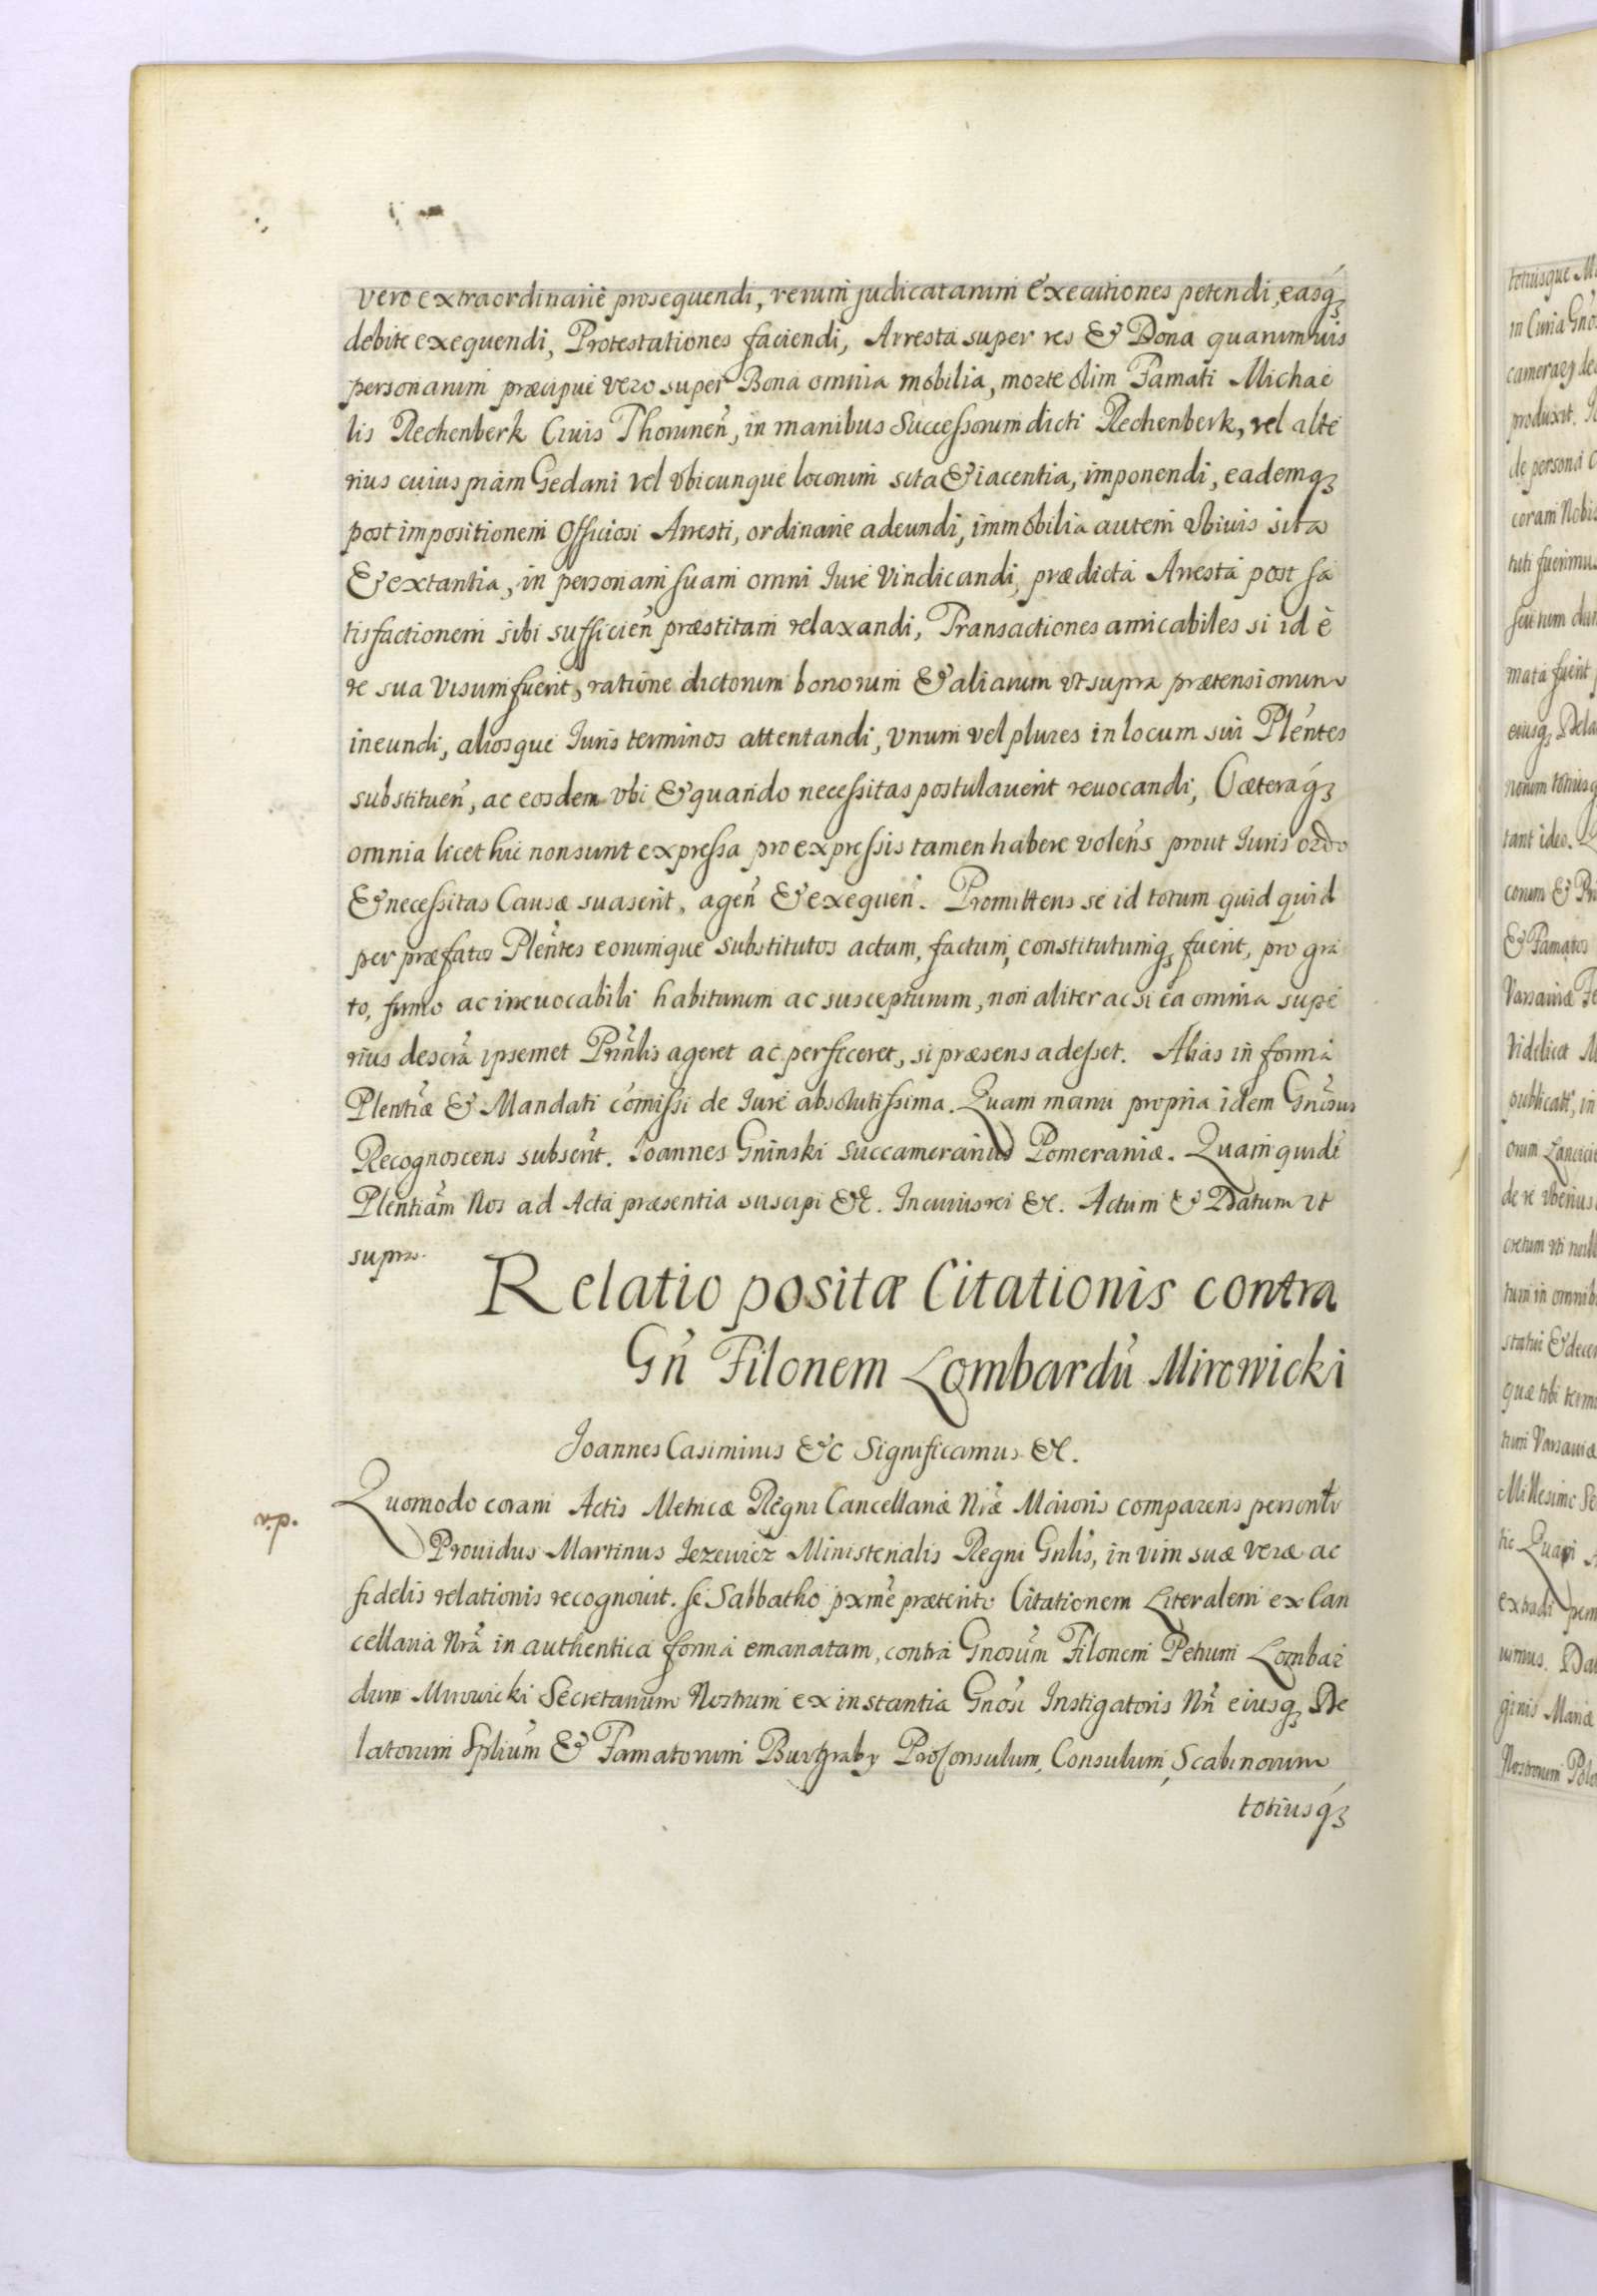 vero extraordinarie prosequendi, rerum judicatarum Executiones petendi, easq́ꝫ
debite exequendi, Protestationes faciendi, Arresta super res & Bona quarumvis
personarum præcipue vero super Bona omnia mobilia, morte olim Famati Michae
lis Rechenberk Civis Thorunen̄, in manibus Successorum dicti Rechenberk, vel alte
rius cuiuspiam Gedani vel vbicunque locorum sita & iacentia, imponendi, eademqꝫ
post impositionem Officiosi Arresti, ordinarie adeundi, immobilia autem vbiuis sita
& extantia, in personam suam omni Iure Vindicandi, prædicta Arresta post sa
tisfactionem sibi sufficien̄ præstitam relaxandi, Transactiones amicabiles si id è
re sua visum fuerit, ratione dictorum bonorum & aliarum vt supra prætensionum
ineundi, aliosque Iuris terminos attentandi, Vnum vel plures in locum sui Plēntes
substituen̄, ac eosdem vbi & quando necessitas postulauerit reuocandi, Cæteraq́ꝫ
omnia licet hic non sunt expressa pro expressis tamen habere volens prout Iuris ordo
& necessitas Causæ suaserit, agen̄ & exequen̄. Promittens se id totum quid quid
per præfatos Plēntes eorumque substitutos actum, factum, constitutumqꝫ fuerit, pro gra
to, firmo ac irreuocabili habiturum ac suscepturum, non aliter ac si ea omnia supe
rius descrā ipsemet Prīnlis ageret ac perficeret, si præsens adesset. Alias in forma
Plentiæ & Mandati com̄issi de Iure absolutissima. Quam manu propria idem Gnōsus
Recognoscens subscrīt. Ioannes Gninski Succamerarius Pomeraniæ. Quam quidē
Plentiam Nos ad Acta præsentia suscipi &c. In cuius rei &c. Actum & Datum vt
supra.
Relatio positæ Citationis contra
Gn̄ Filonem Lombardū Mirowicki
Ioannes Casimirus &c Significamus &c.
Quomodo coram Actis Metricæ Regni Cancellariæ Nr̄æ Maioris comparens personlr
Prouidus Martinus Iezewicz Ministerialis Regni Gnlis, in vim suæ veræ ac
fidelis relationis recognouit. se Sabbatho pxmē præterito Citationem Literalem ex Can
cellaria Nr̄a in authentica forma emanatam, contra Gnosūm Filonem Petrum Lombar
dum Mirowicki Secretarium Nostrum ex instantia Gnōsi Instigatoris Nr̄i eiusqꝫ De
latorum Splium & Famatorum Burgraby ProConsulum, Consulum, Scabinorum
totiusq́ꝫ